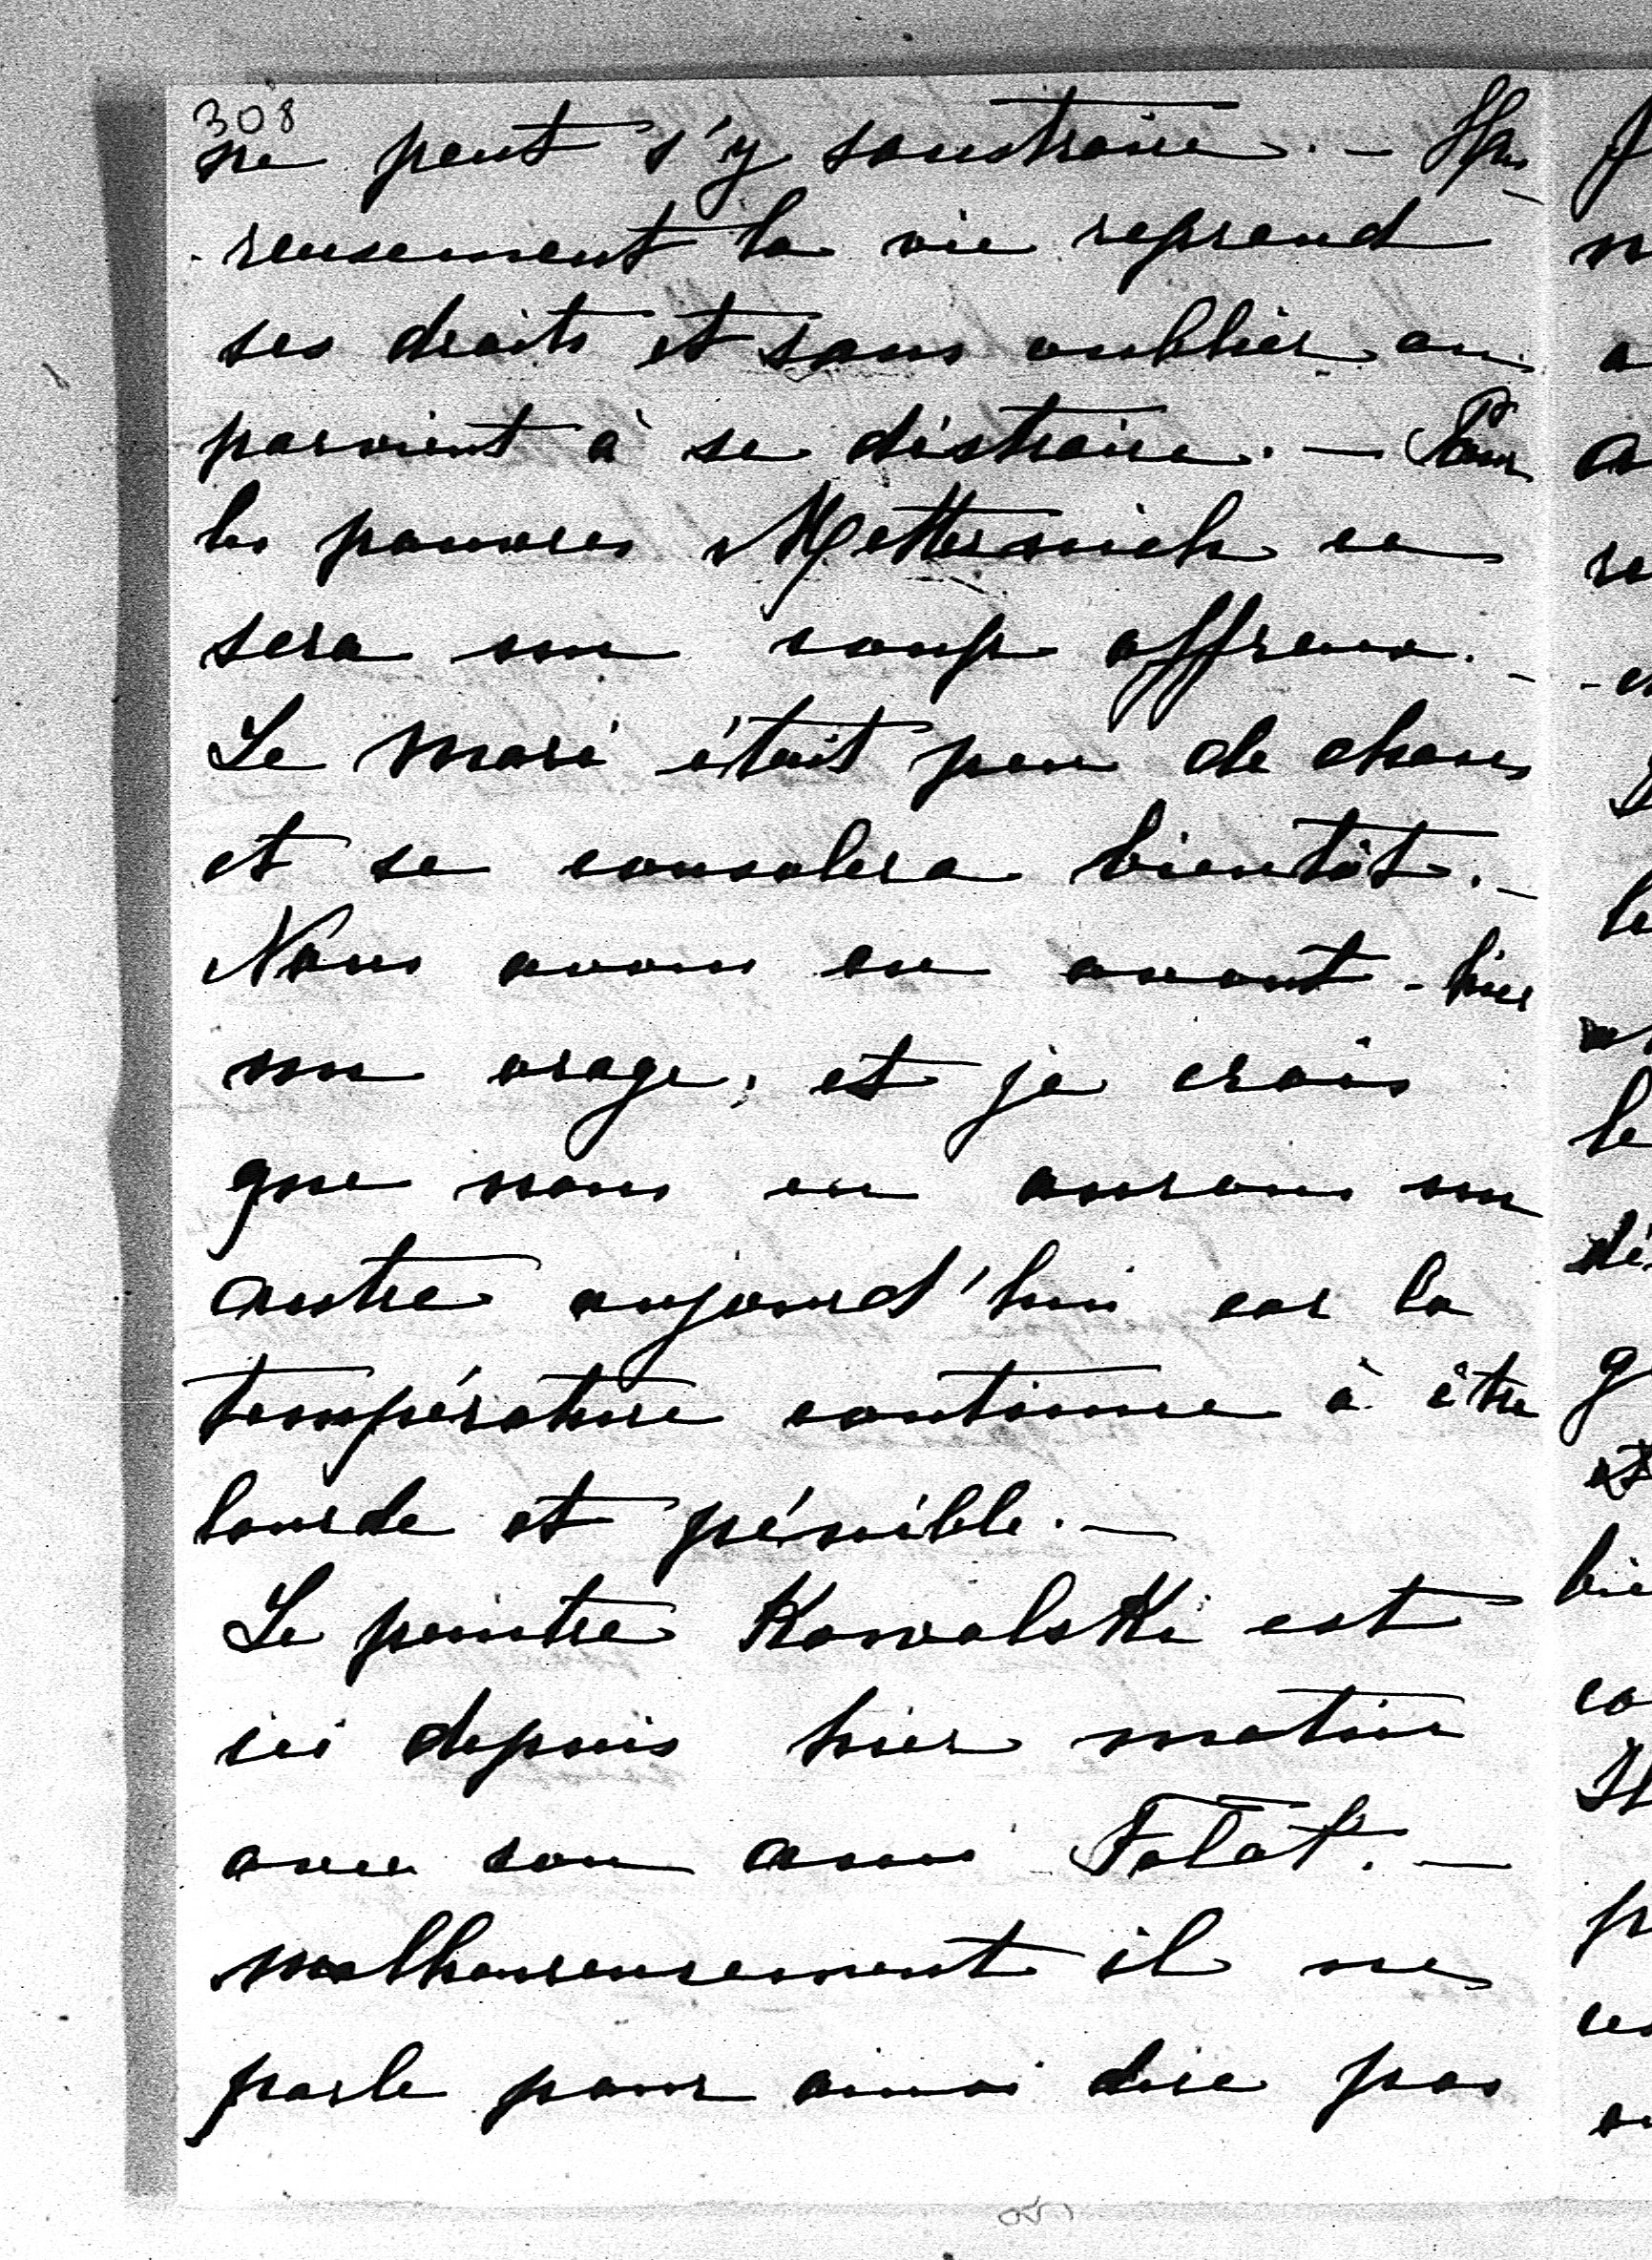 308
ne peut s'y soustraire. – Heu-
reusement la vie reprend
ses droits et sans oublier on
parvient à se distraire. – Pour
les pauvres Metternich ce
sera un coup affreux. –
Le mari était peu de chose
et se consolera bientôt. –
Nous avons eu avant-hier
un orage, et je crois
que nous en aurons un
autre aujourd'hui car la
température continue à être
lourde et pénible. –
Le peintre Kowalski est
ici depuis hier matin
avec son ami Falat. –
malheureusement il ne
parle pour ainsi dire pas